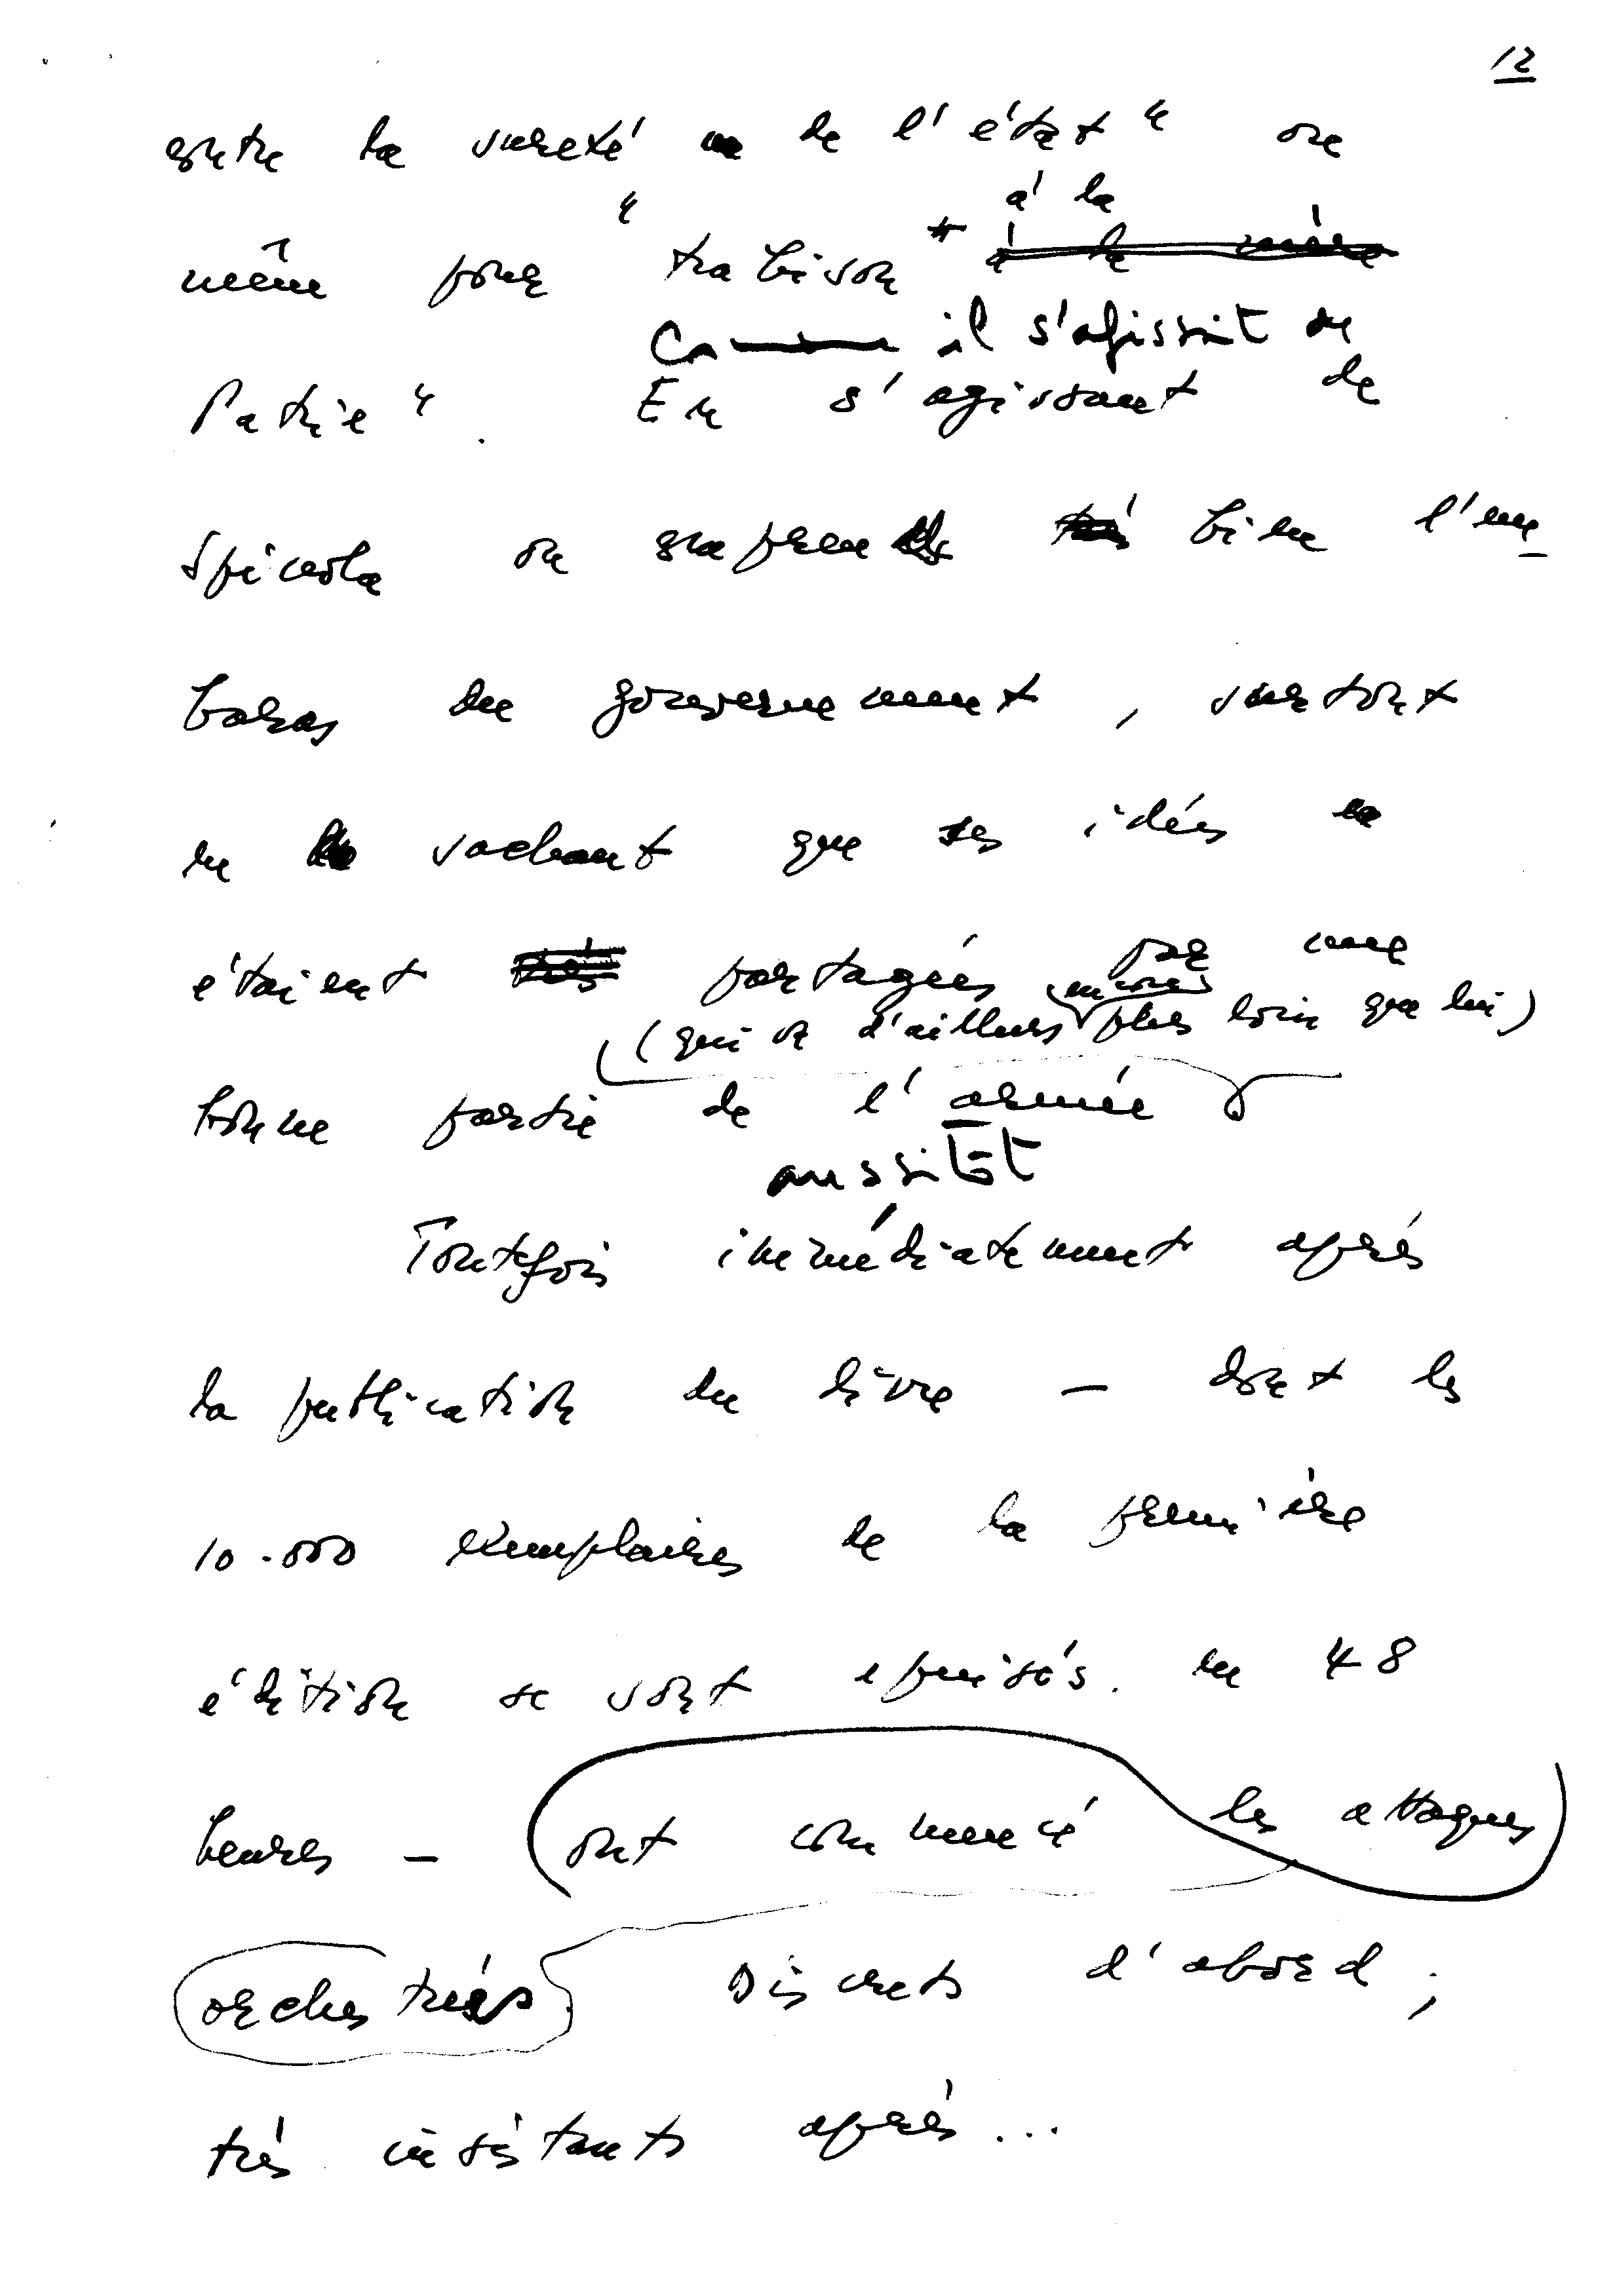 12
contre la sureté de l'état" ou
à la
même pour "trahison" à la mère
Co il s'agissait de
Patrie". En s'agissant de
Spinola on comprend très bien l'em-
baras du gouvernement, surtout
en sachant que ses idées
étaient très partagées par une
encore
(qui va d'ailleurs plus loin que lui)
bonne partie de l'armée
aussitôt
Toutefois immédiatement après
la publication du livre - dont les
10.000 exemplaires de la première
édition se sont épuisés en 48
heures - ont commencé les attaques
orchestrées Discrets d'abord;
très insistants après...